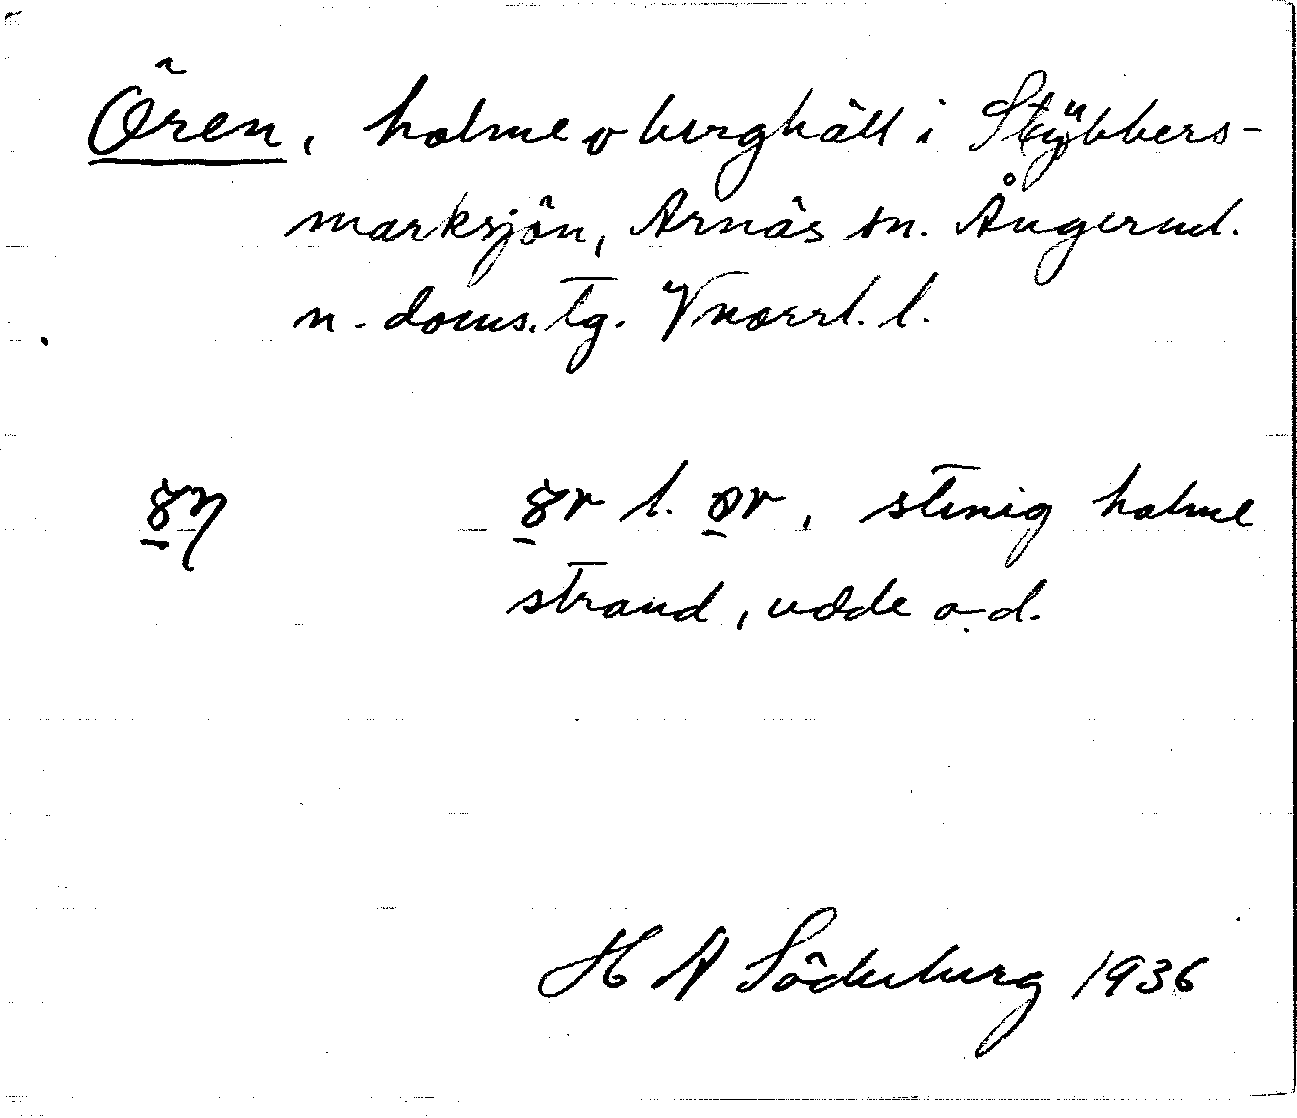 Ören, holme o berghäll i Stybbers-
marksjön, Arnäs sn. Ångerml.
n. doms. tg. Vnorrl. l.
ör l. ør, stenig holme
strand, udde o.d.
H A Söderberg 1936